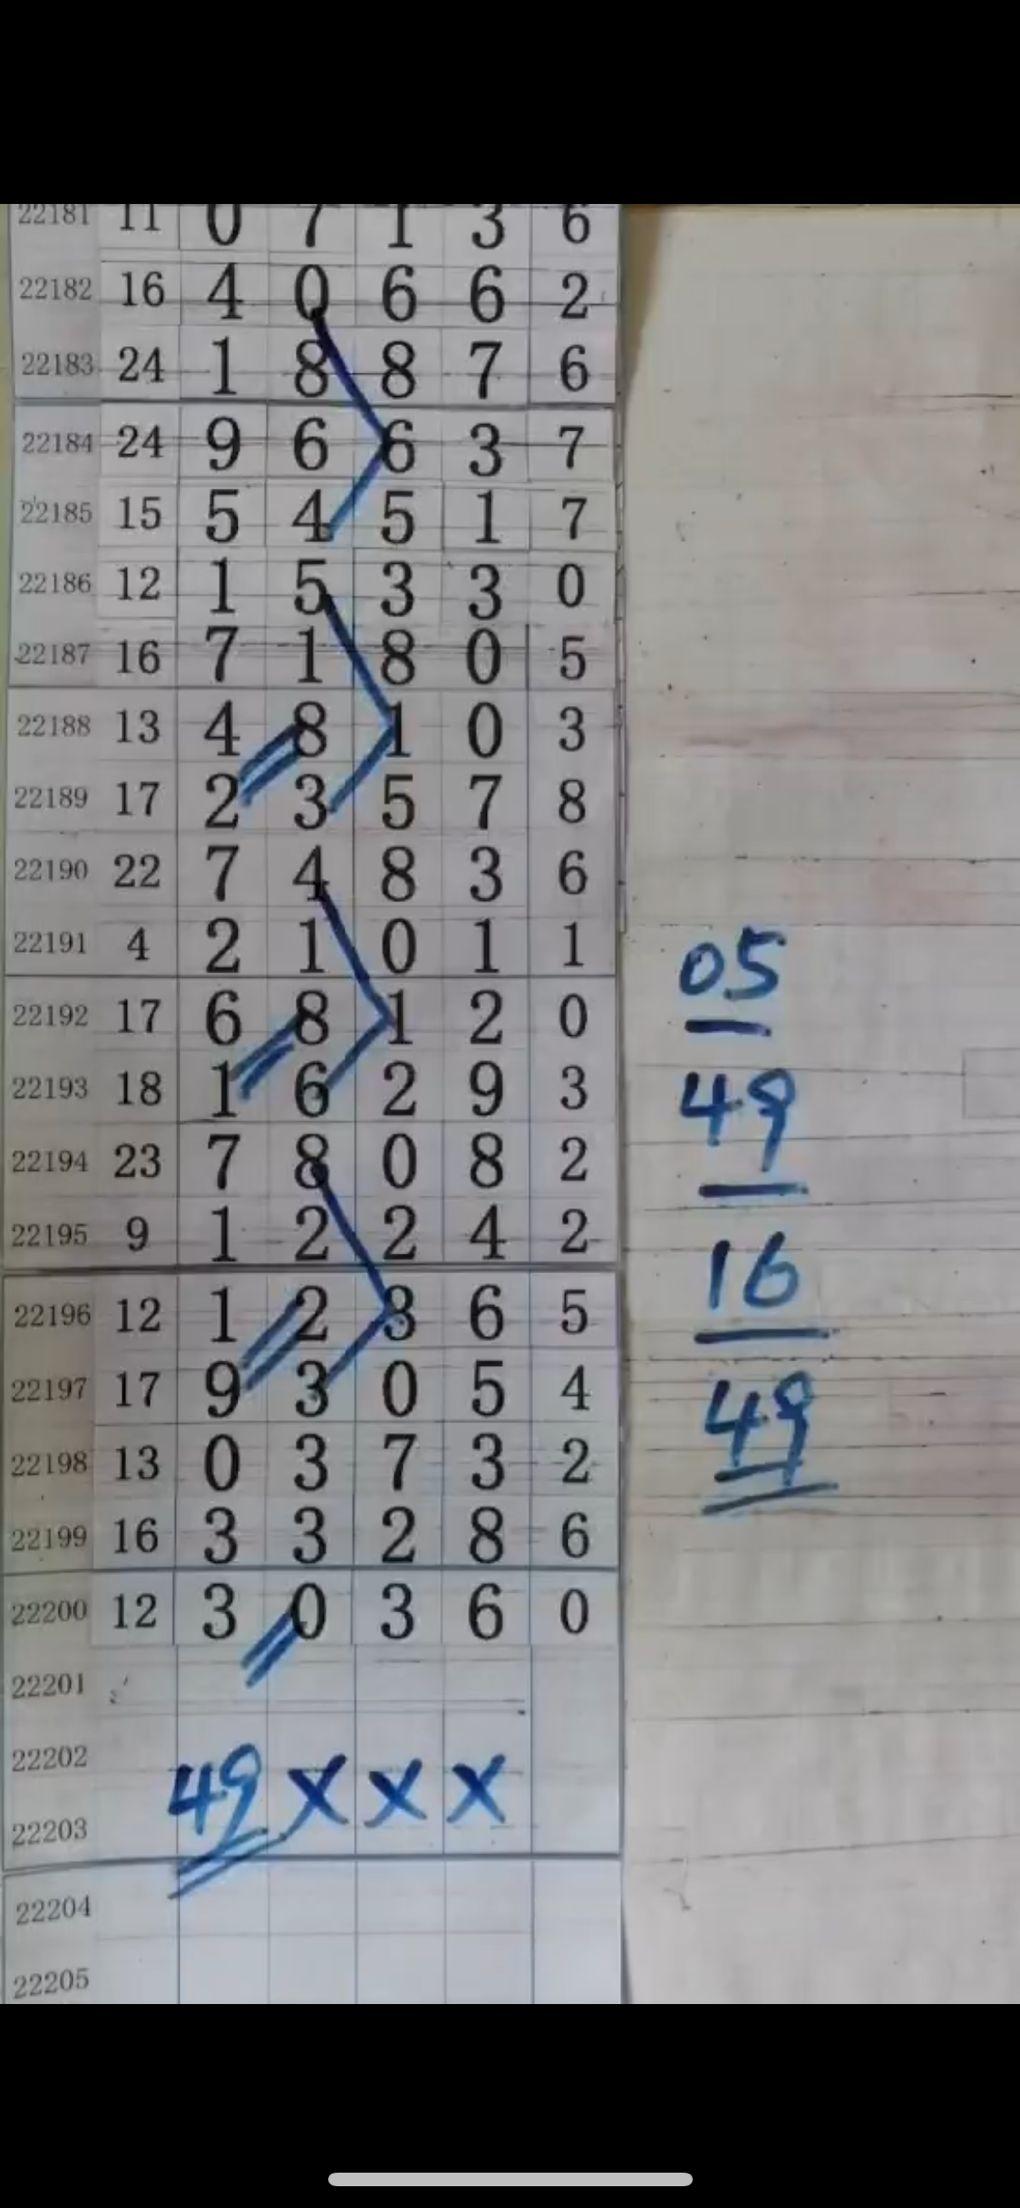 22181 11 0 7 1 3 6
22182 16 4 0 6 6 2
22183 24 1 8 8 7 6
22184 24 9 6 6 3 7
22185 15 5 4 5 1 7
22186 12 1 5 3 3 0
22187 16 7 1 8 0 5
22188 13 4 8 1 0 3
22189 17 2 3 5 7 8
22190 22 7 4 8 3 6
22191 4 2 1 0 1 1
22192 17 6 8 1 2 0
22193 18 1 6 2 9 3
22194 23 7 8 0 8 2
22195 9 1 2 2 4 2
22196 12 1 2 3 6 5
22197 17 9 3 0 5 4
22198 13 0 3 7 3 2
22199 16 3 3 2 8 6
22200 12 3 0 3 6 0
22201
22202
49 X X X
22203
22204
22205
05
49
16
49